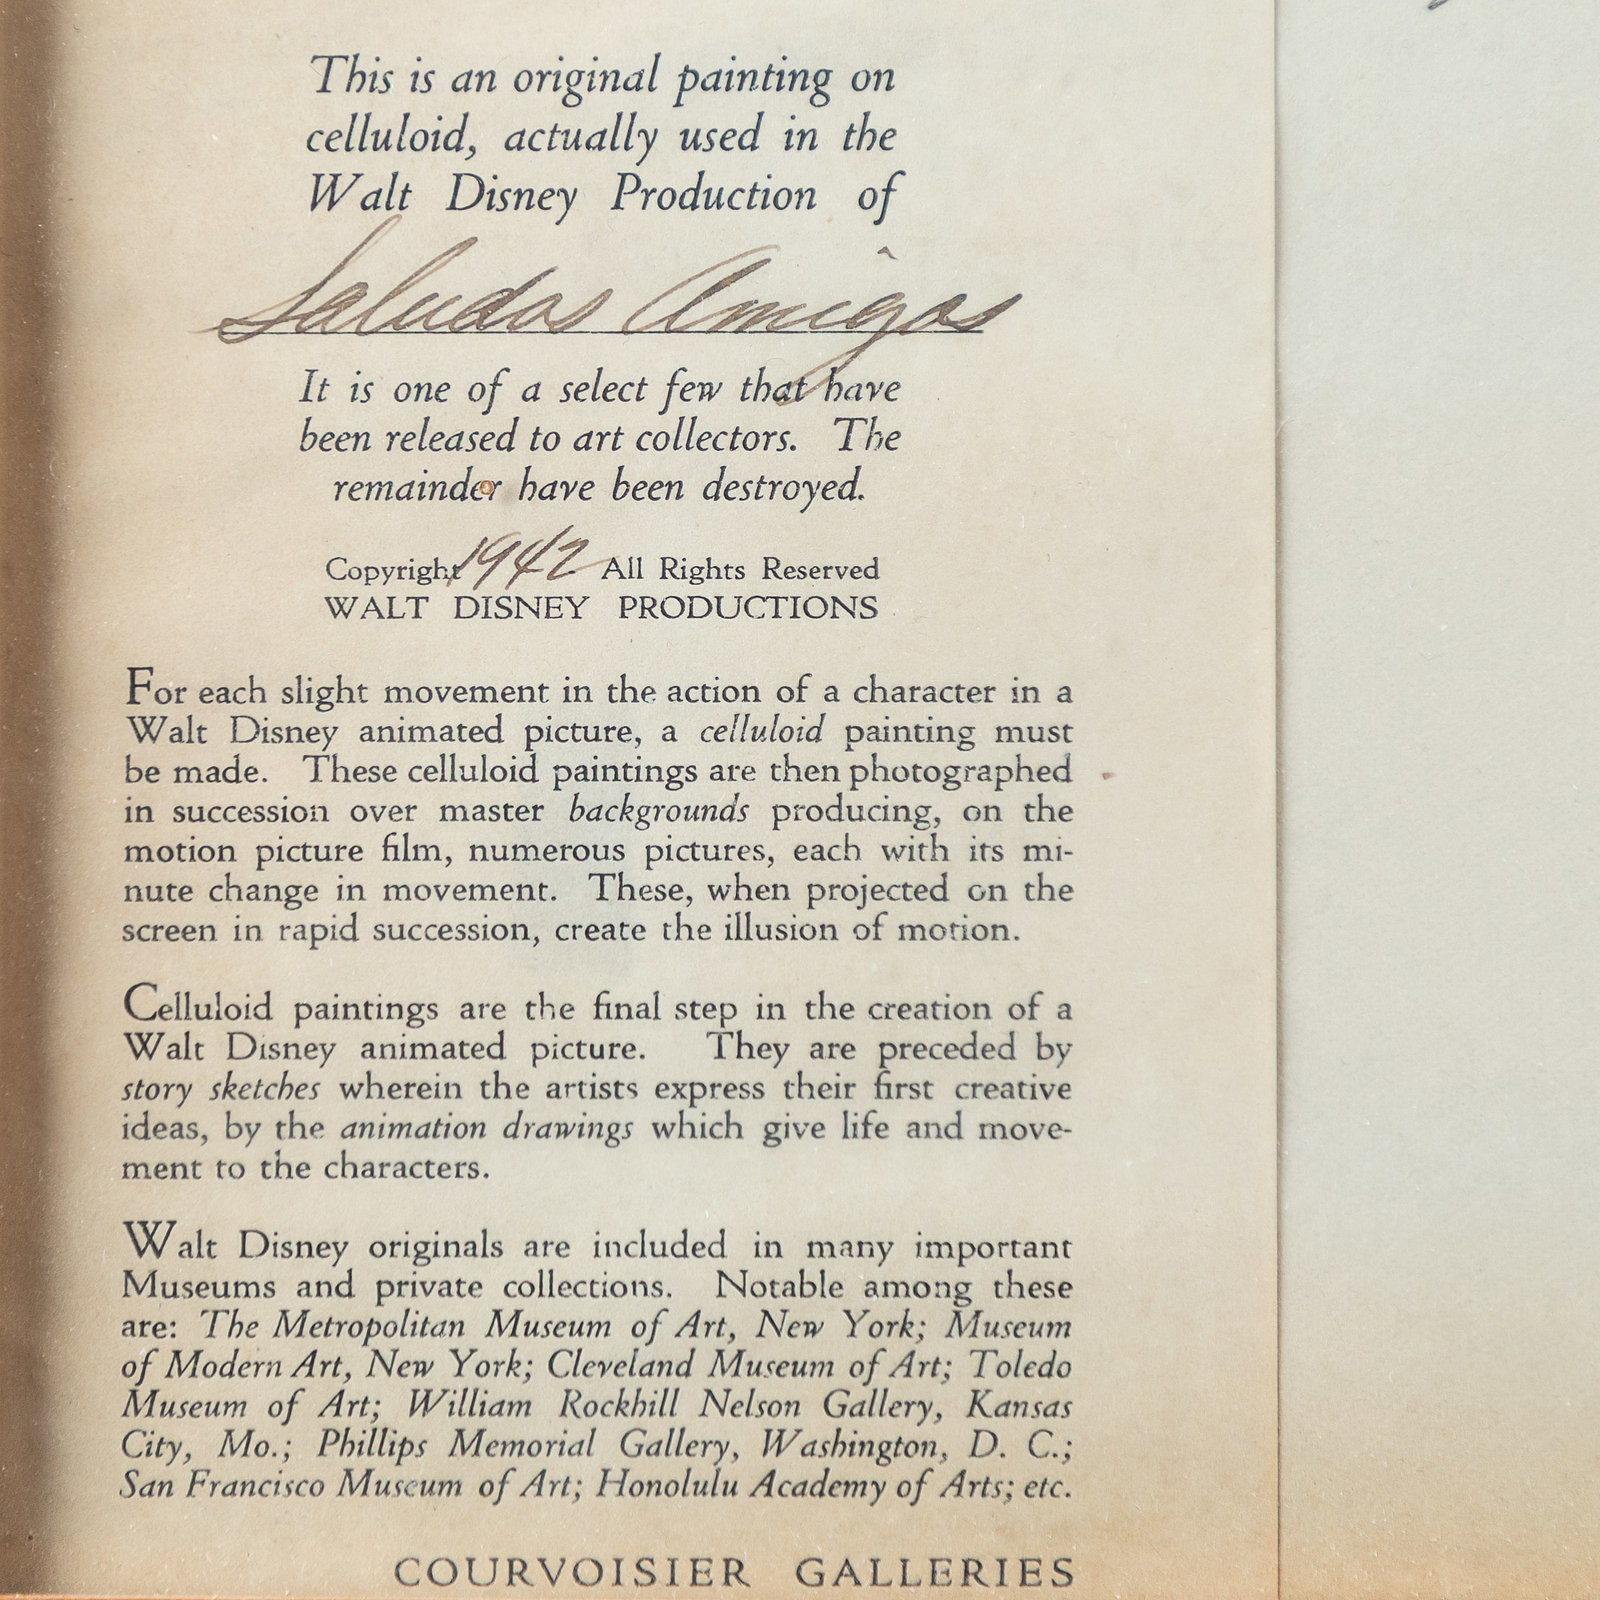 This is an original painting on
celluloid, actually used in the
Walt Disney Production of
Saludos Amigos
It is one of a select few that have
been released to art collectors. The
remainder have been destroyed.
Copyright 1942 All Rights Reserved
WALT DISNEY PRODUCTIONS
For each slight movement in the action of a character in a
Walt Disney animated picture, a celluloid painting must
be made. These celluloid paintings are then photographed
in succession over master backgrounds producing, on the
motion picture film, numerous pictures, each with its mi-
nute change in movement. These, when projected on the
screen in rapid succession, create the illusion of motion.
Celluloid paintings are the final step in the creation of a
Walt Disney animated picture. They are preceded by
story sketches wherein the artists express their first creative
ideas, by the animation drawings which give life and move-
ment to the characters.
Walt Disney originals are included in many important
Museums and private collections. Notable among these
are: The Metropolitan Museum of Art, New York; Museum
of Modern Art, New York; Cleveland Museum of Art; Toledo
Museum of Art; William Rockhill Nelson Gallery, Kansas
City, Mo.; Phillips Memorial Gallery, Washington, D. C.;
San Francisco Museum of Art; Honolulu Academy of Arts; etc.
COURVOISIER GALLERIES